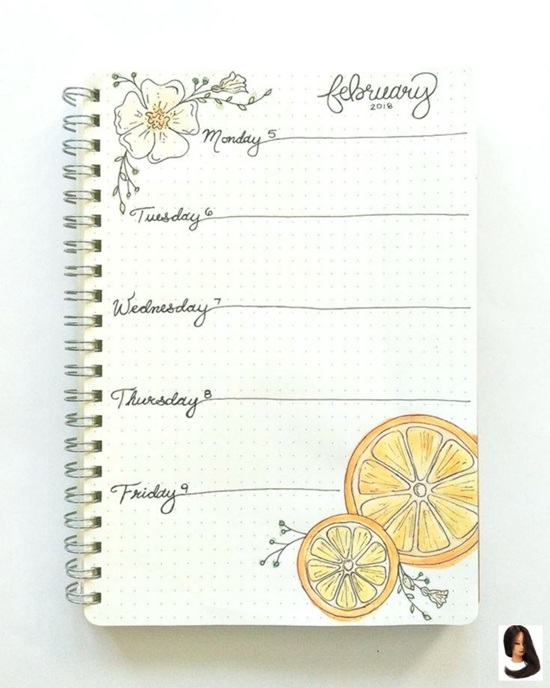 february
2018
Monday 5
Tuesday 6
Wednesday 7
Thursday 8
Friday 9